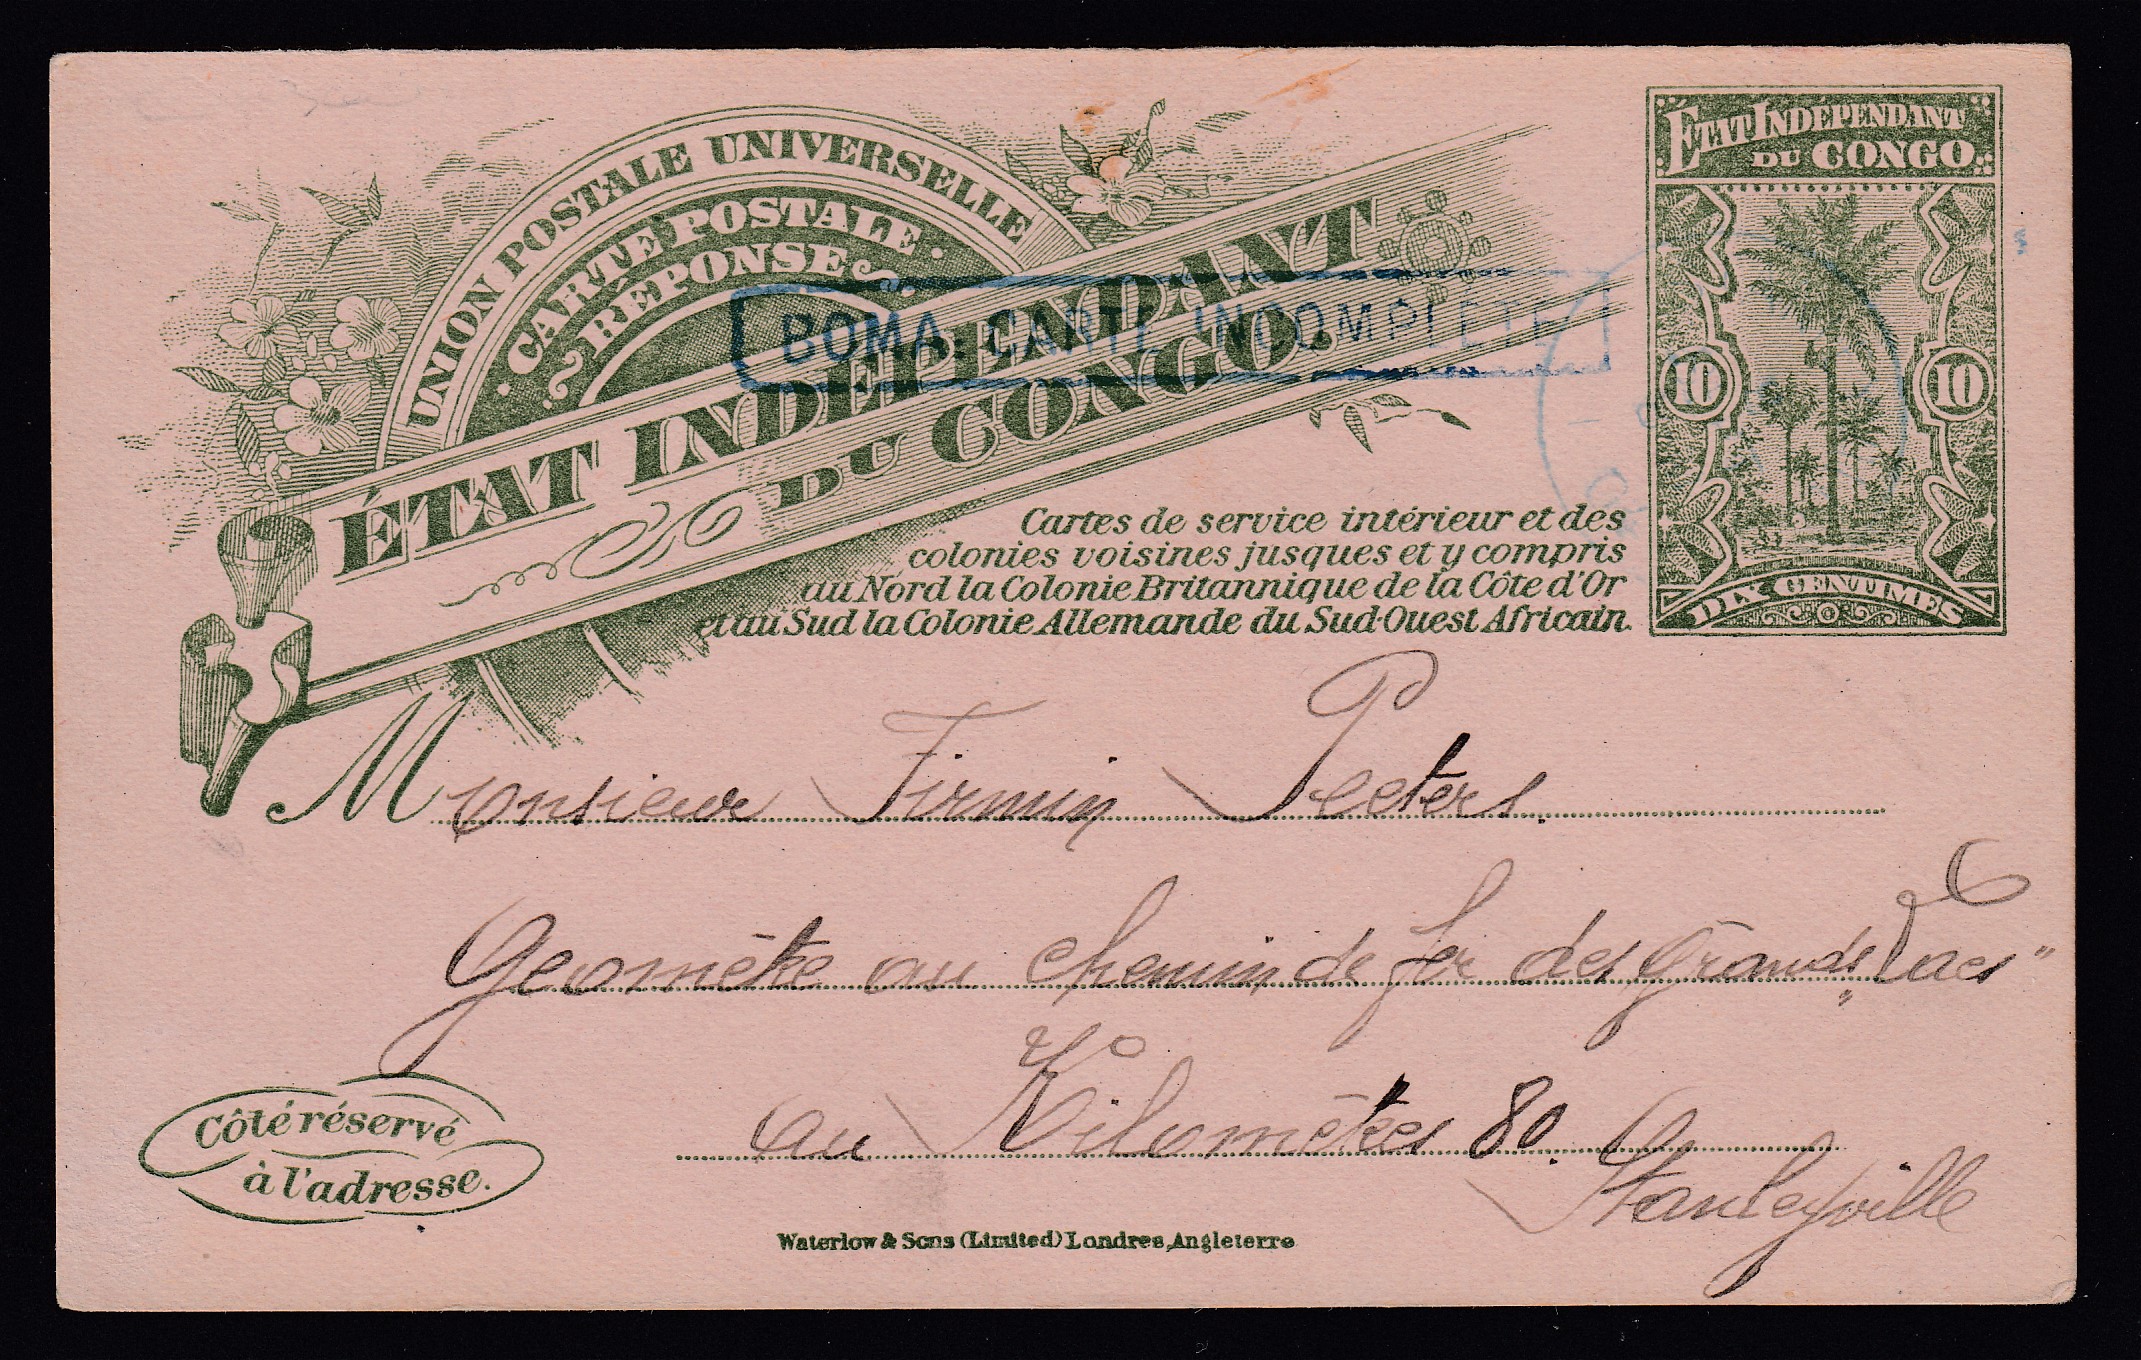 UNION POSTALE UNIVERSELLE
CARTE POSTALE
RÉPONSE
ÉTAT INDÉPENDANT
DU CONGO.
BOMA. CARTE INCOMPLETE
ÉTAT INDÉPENDANT
DU CONGO
10 10
DIX CENTIMES
Cartes de service intérieur et des
colonies voisines jusques et y compris
au Nord la Colonie Britannique de la Côte d'Or
et au Sud la Colonie Allemande du Sud-Ouest Africain.
Monsieur Firmin Peeters
Geomètre au chemin de fer des Grands Lacs"
au Kilomètres 80.
Stanleyville
Côté réservé
à l'adresse.
Waterlow & Sons (Limited) Londres, Angleterre